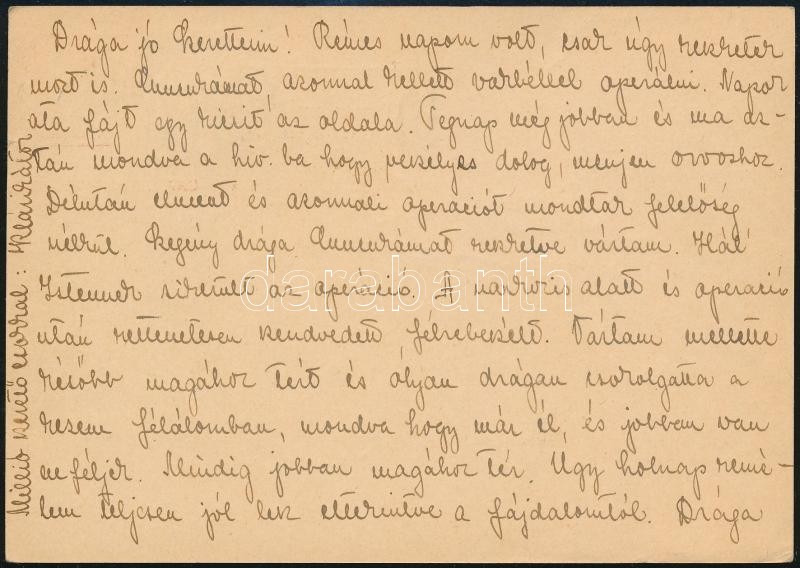 Drága jó Keretteim! Rémes napom volt, csak úgy reszketek
most is. Anyukámat, azonnal kellett vakbéllel operálni. Napok
óta fájt egy kicsit az oldala. Tegnap még jobban és ma az-
tán mondva a hiv. ba hogy csekélyes dolog, menjen orvoshoz.
Délután elment és azonnali operációt mondtak felelőség
nélkül. Szegény drága Anyukámat reszketve vártam. Hál'
Istennek sikerült az operáció. A narkózis alatt és operáció
után rettenetesen szenvedett félrebeszélt. Vártam mellette
később magához tért és olyan drágán csókolgatta a
kezem félálomban, mondva hogy már él, és jobban van
ne féljek. Mindig jobban magához tér. Úgy holnap remé-
lem teljesen jól lesz eltekintve a fájdalomtól. Drága
Millió kerető csókkal: Klárikától
darabanth